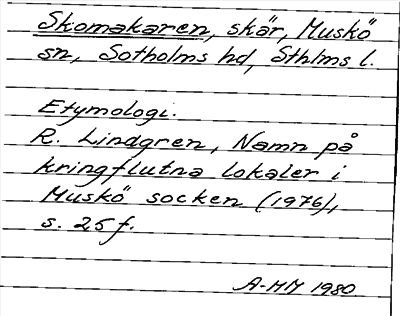 Skomakaren, skär, Muskö
sn, Sotholms hd, Sthlms l.
Etymologi.
R. Lindgren, Namn på
kringflutna lokaler i
Muskö socken (1976),
s. 25 f.
A-MM 1980